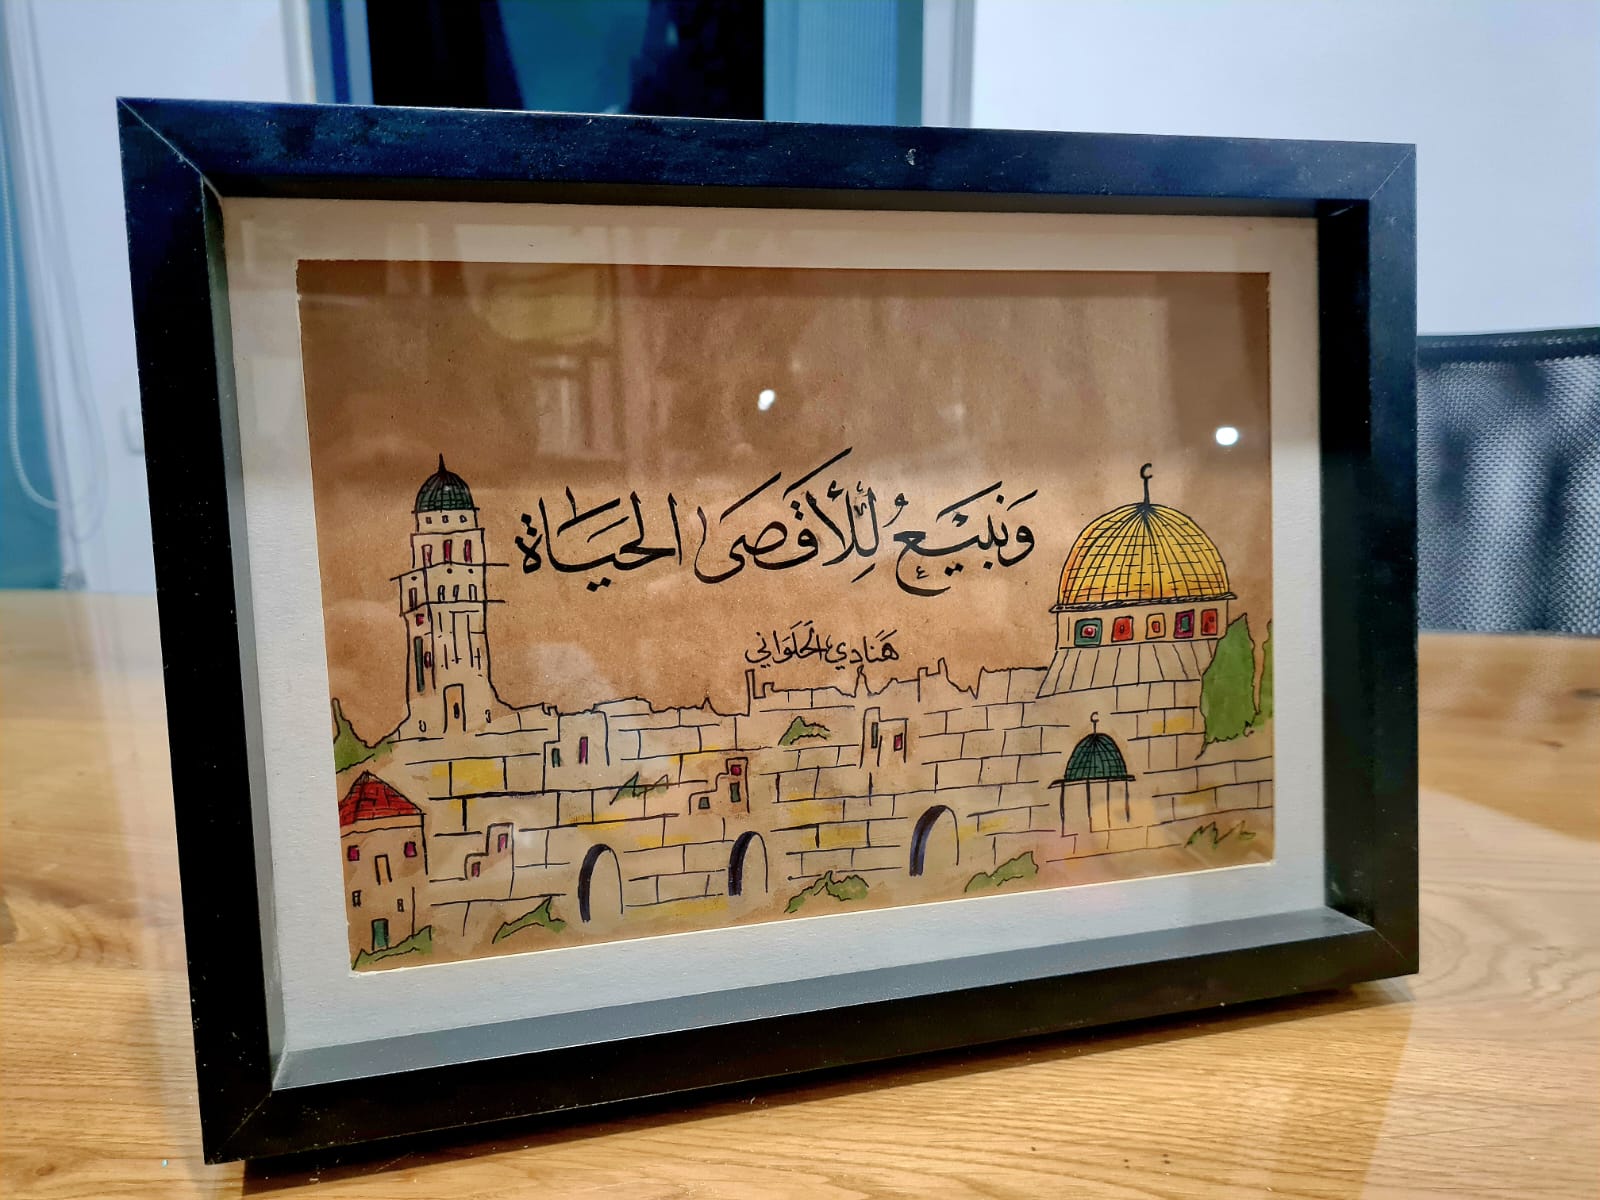 وَنَبِيْعُ لِلْأَقْصَى الحَيَاة
هَنَادي الحَلَوَاني